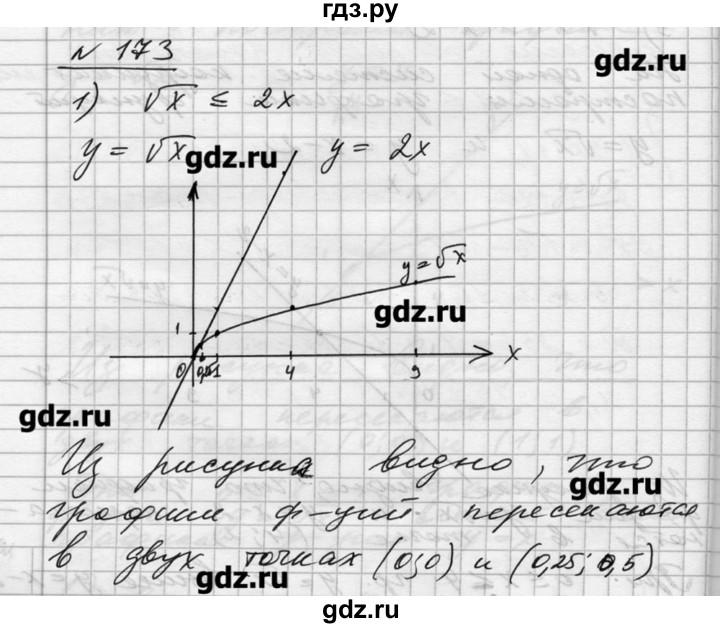 гдз.ру
N 173
gdz.ru
1) √x ≤ 2x
y = √x y = 2x
gdz.ru
y = √x
gdz.ru
1
0 0,25 1 4 9 x
gdz.ru
Из рисунка видно, что
gdz.ru
графики ф-ций пересекаются
в двух точках (0;0) и (0,25; 0,5)
gdz.ru
gdz.ru